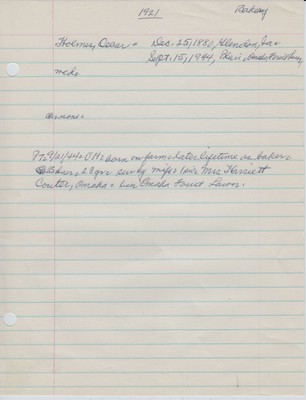 1921 Bakery
Holmes, Oscar = Dec. 25, 1880, Glendon, Ia =
Sept. 15, 1944,
Nebr.
Sermons =
9/21/44 = OH = born on farm = later lifetime as baker =
28 yrs surv by wife = 1 sis Mrs Harriett
Coulter, Omaha = bur Omaha Forest Lawn.